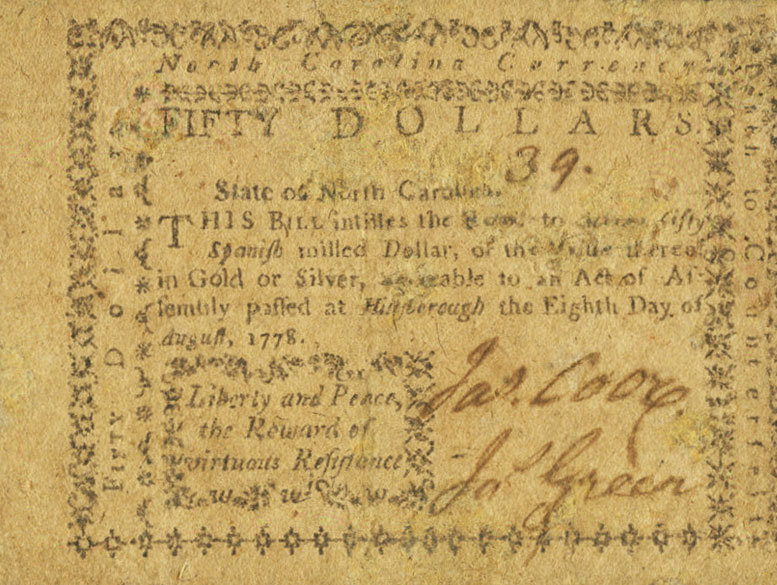 North Carolina Currency.
FIFTY DOLLARS.
39.
State of North Carolina.
THIS BILL intitles the to fifty
Spanish milled Dollar, or the Value thereof
in Gold or Silver, agreeable to an Act of Aſ-
ſembly paſſed at Hillſborough the Eighth Day of
Auguſt, 1778.
Liberty and Peace,
the Reward of
virtuous Reſiſtance
Jas. Coor
Jos Green
Fifty Dollars
Death to Counterfeit